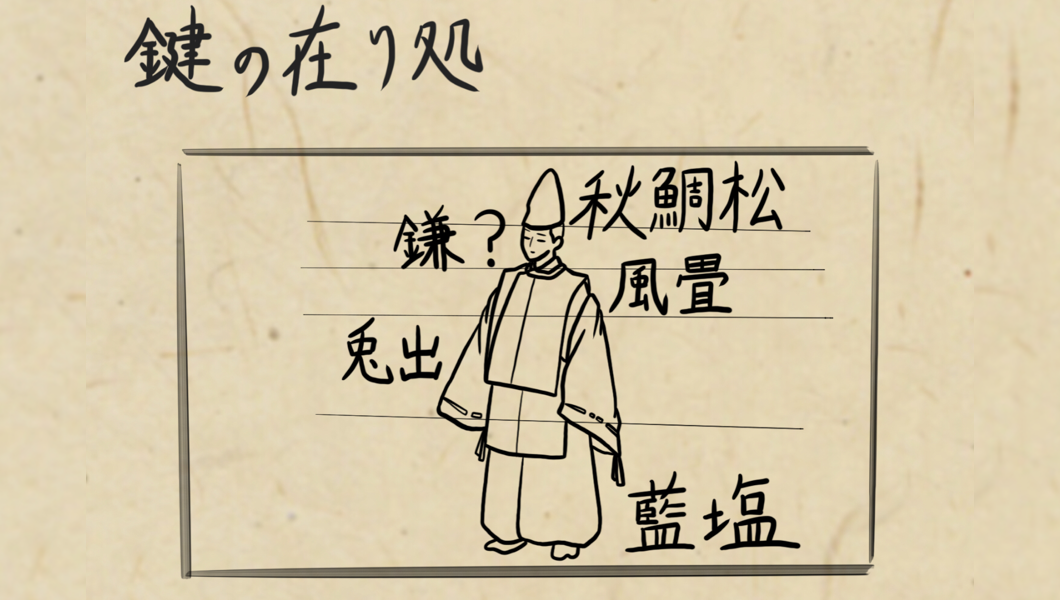 鍵の在り処
秋鯛松
鎌？
風畳
兎出
藍塩